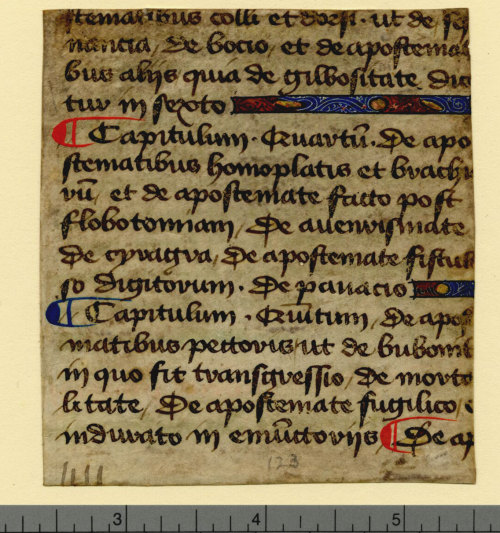 stematibus colli et dorsi · ut de sq
nancia, De bocio, et de apostema
bus aliis quia de gilbositate dic
tur in sexto
Capitulum · Quartū · De apo
stematibus homoplatis et brachi
rū, et de apostemate facto post
flobotomiam, De aneurismate
de cyragra, De apostemate fistul
so digitorum · De panacio
Capitulum · Quītum, de apos
matibus pectoris, ut de bubonit
in quo fit transgressio, de morto
litate, De apostemate fugilico, e
indurato in emūctoriis De ap
123
3 4 5